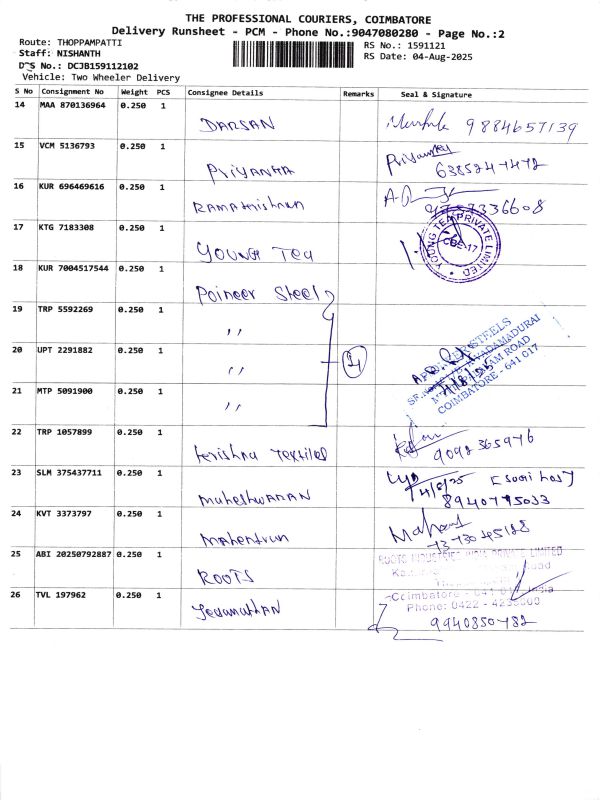 THE PROFESSIONAL COURIERS, COIMBATORE
Delivery Runsheet - PCM - Phone No.:9047080280 - Page No.:2
Route: THOPPAMPATTI
RS No.: 1591121
Staff: NISHANTH
RS Date: 04-Aug-2025
DRS No.: DCJB159112102
Vehicle: Two Wheeler Delivery
S No Consignment No Weight PCS Consignee Details Remarks Seal & Signature
14 MAA 870136964 0.250 1
DARSAN 9884657139
15 VCM 5136793 0.250 1
PRIYANKA Priyanka 6385247472
16 KUR 696469616 0.250 1
RAMAKrishnan
17 KTG 7183308 0.250 1
YOUNG Tea YOUNG TEA PRIVATE LIMITED CBE-17
18 KUR 7004517544 0.250 1
Poineer Steel
19 TRP 5592269 0.250 1
,,
20 UPT 2291882 0.250 1
,, 4
21 MTP 5091900 0.250 1
,,
STEELS
ROAD
COIMBATORE - 641 017
22 TRP 1057899 0.250 1
Krishna Textiles 9092365976
23 SLM 375437711 0.250 1
Maheshwaran 4/8/25 8940775033
24 KVT 3373797 0.250 1
Mahendran
25 ABI 20250792887 0.250 1
ROOTS ROOTS INDUSTRIES INDIA PRIVATE LIMITED
Road
Coimbatore - 641 017 India
Phone: 0422 - 4230000
26 TVL 197962 0.250 1
9940850782